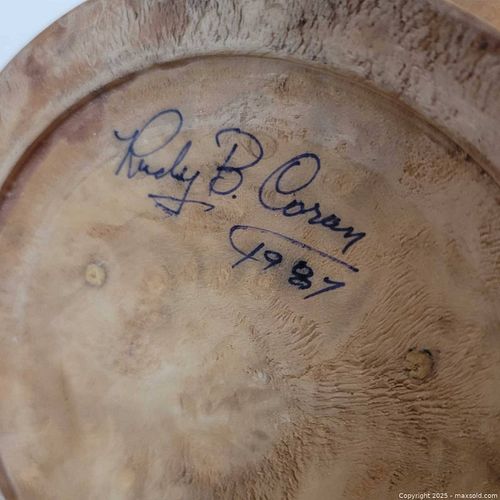 Rudy B. Coran
1987
Copyright © 2025 - maxsold.com